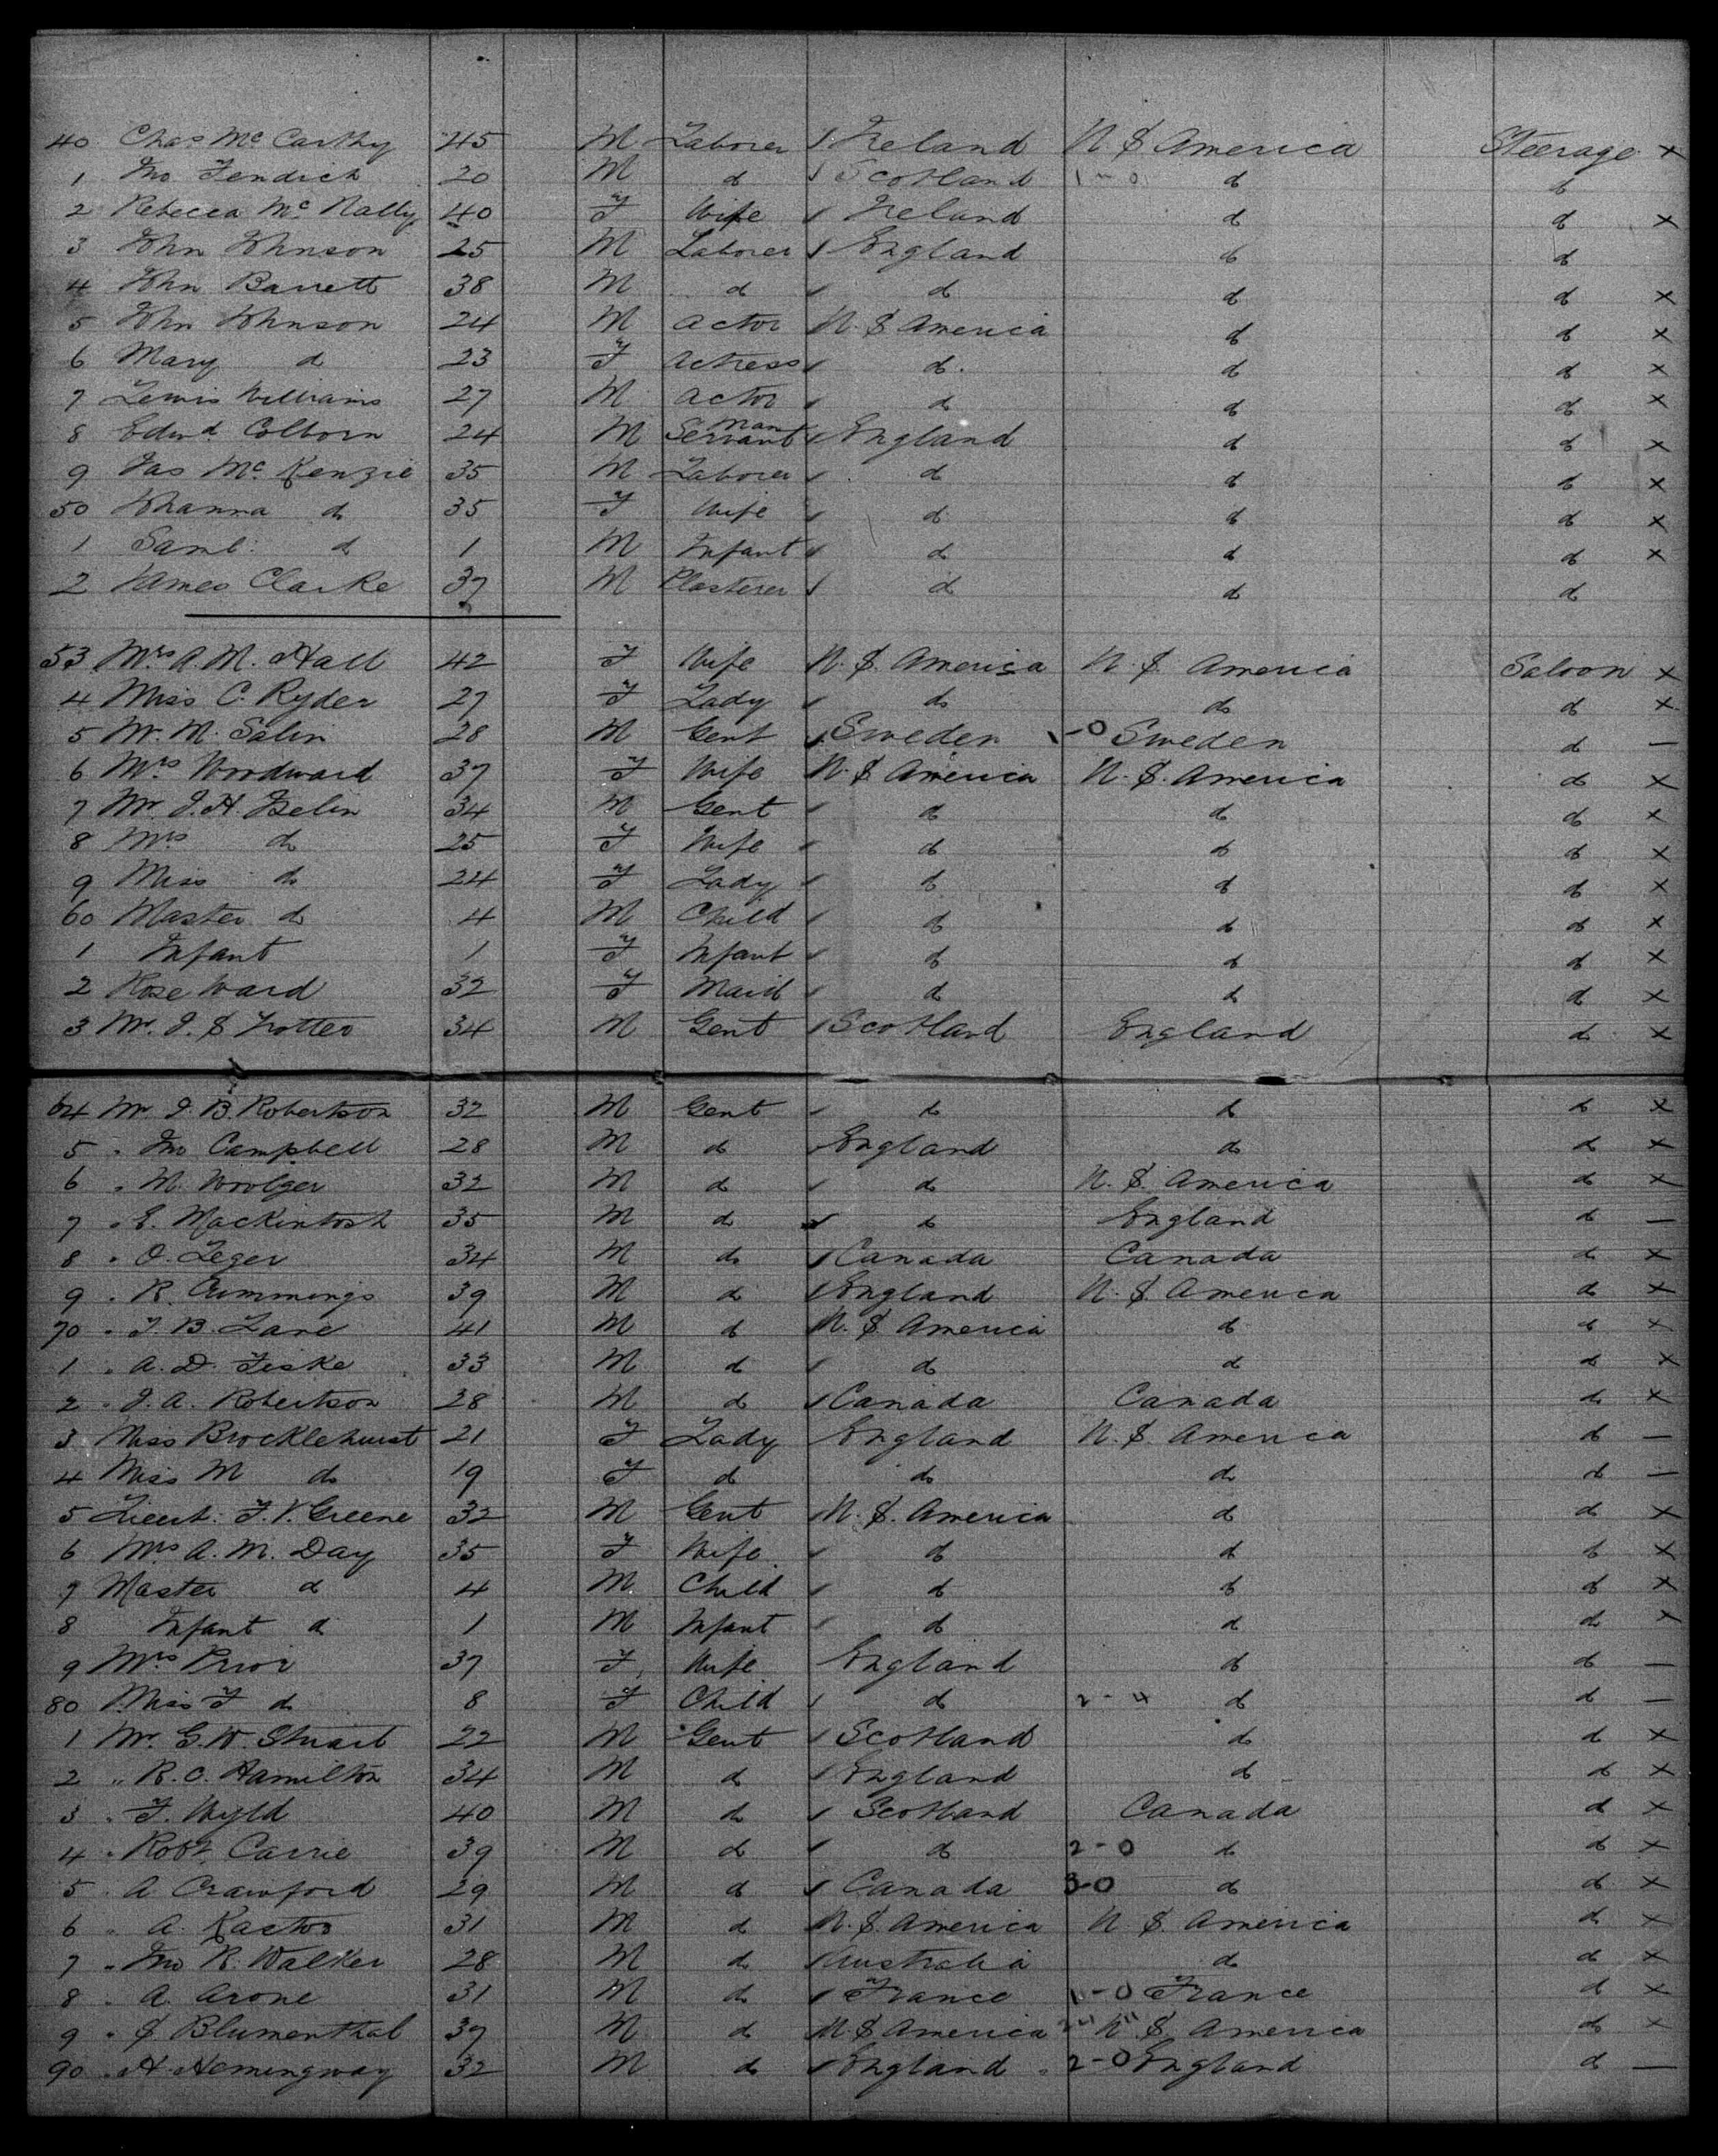 40 Chas Mc Carthy 45 M Laborer Ireland U. S America Steerage x
1 Jno Fendich 20 M d Scotland 1-0 d d
2 Rebecca Mc Nally 40 F Wife Ireland d d x
3 John Johnson 25 M Laborer England d d
4 John Barrett 38 M d d d d x
5 John Johnson 24 M Actor U. S America d d x
6 Mary d 23 F Actress d. d d x
7 Lewis Williams 27 M Actor d d d x
8 Edwd Colborn 24 M Man Servant England d d x
9 Jas Mc Kenzie 35 M Laborer d d d x
50 Johanna do 35 F Wife d d d x
1 Saml: d 1 M Infant d d d x
2 James Clarke 37 M Plasterer d d d
53 Mrs A. M. Hall 42 F Wife U. S. America U. S. America Saloon x
4 Miss C. Ryder 27 F Lady do do d x
5 Mr. M. Salin 28 M Gent Sweden 1-0 Sweden d —
6 Mrs Woodward 37 F Wife U. S America U. S. America d x
7 Mr J. H. Iselin 34 M Gent d d d x
8 Mrs do 25 F Wife d d d x
9 Miss do 24 F Lady d d d x
60 Master do 4 M Child d d d x
1 Infant 1 F Infant d d d x
2 Rose Ward 32 F Maid d d d x
3 Mr. J. S Trotter 34 M Gent Scotland England d x
64 Mr J. B. Robertson 32 M Gent d d d x
5 " Jno Campbell 28 M d England do d x
6 " M. Woolger 32 M d d U. S. America d x
7 " E. Mackintosh 35 M d d England d —
8 " O. Leger 34 M do Canada Canada d x
9 " R. Cummings 39 M d England U. S America d x
70 " F. B. Lane 41 M d U. S America d d x
1 " A. D. Fiske 33 M d d d d x
2 " J. A. Robertson 28 M d Canada Canada d x
3 Miss Brocklehurst 21 F Lady England U. S. America d —
4 Miss M do 19 F d do d d —
5 Lieut: F. V. Greene 32 M Gent U. S. America d d x
6 Mrs A. M. Day 35 F Wife d d d x
7 Master d 4 M Child d d d x
8 Infant d 1 M Infant d d d x
9 Mrs Prior 37 F Wife England d d —
80 Miss F d 8 F Child d 2-4 d d —
1 Mr. G. W. Stuart 22 M Gent Scotland d d x
2 " R. C. Hamilton 34 M d England d d x
3 " F. Wyld 40 M do Scotland Canada d x
4 " Robt. Carrie 39 M d d 2-0 d d x
5 " A Crawford 29 M d Canada 3-0 d d x
6 " A. Kastor 31 M d U. S. America U S. America d x
7 " Jno R. Walker 28 M d Australia d d x
8 " A. Arone 31 M d France 1-0 France d x
9 " S. Blumenthal 37 M d U S America U. S. America d x
90 " H Hemingway 32 M do England 2-0 England d —